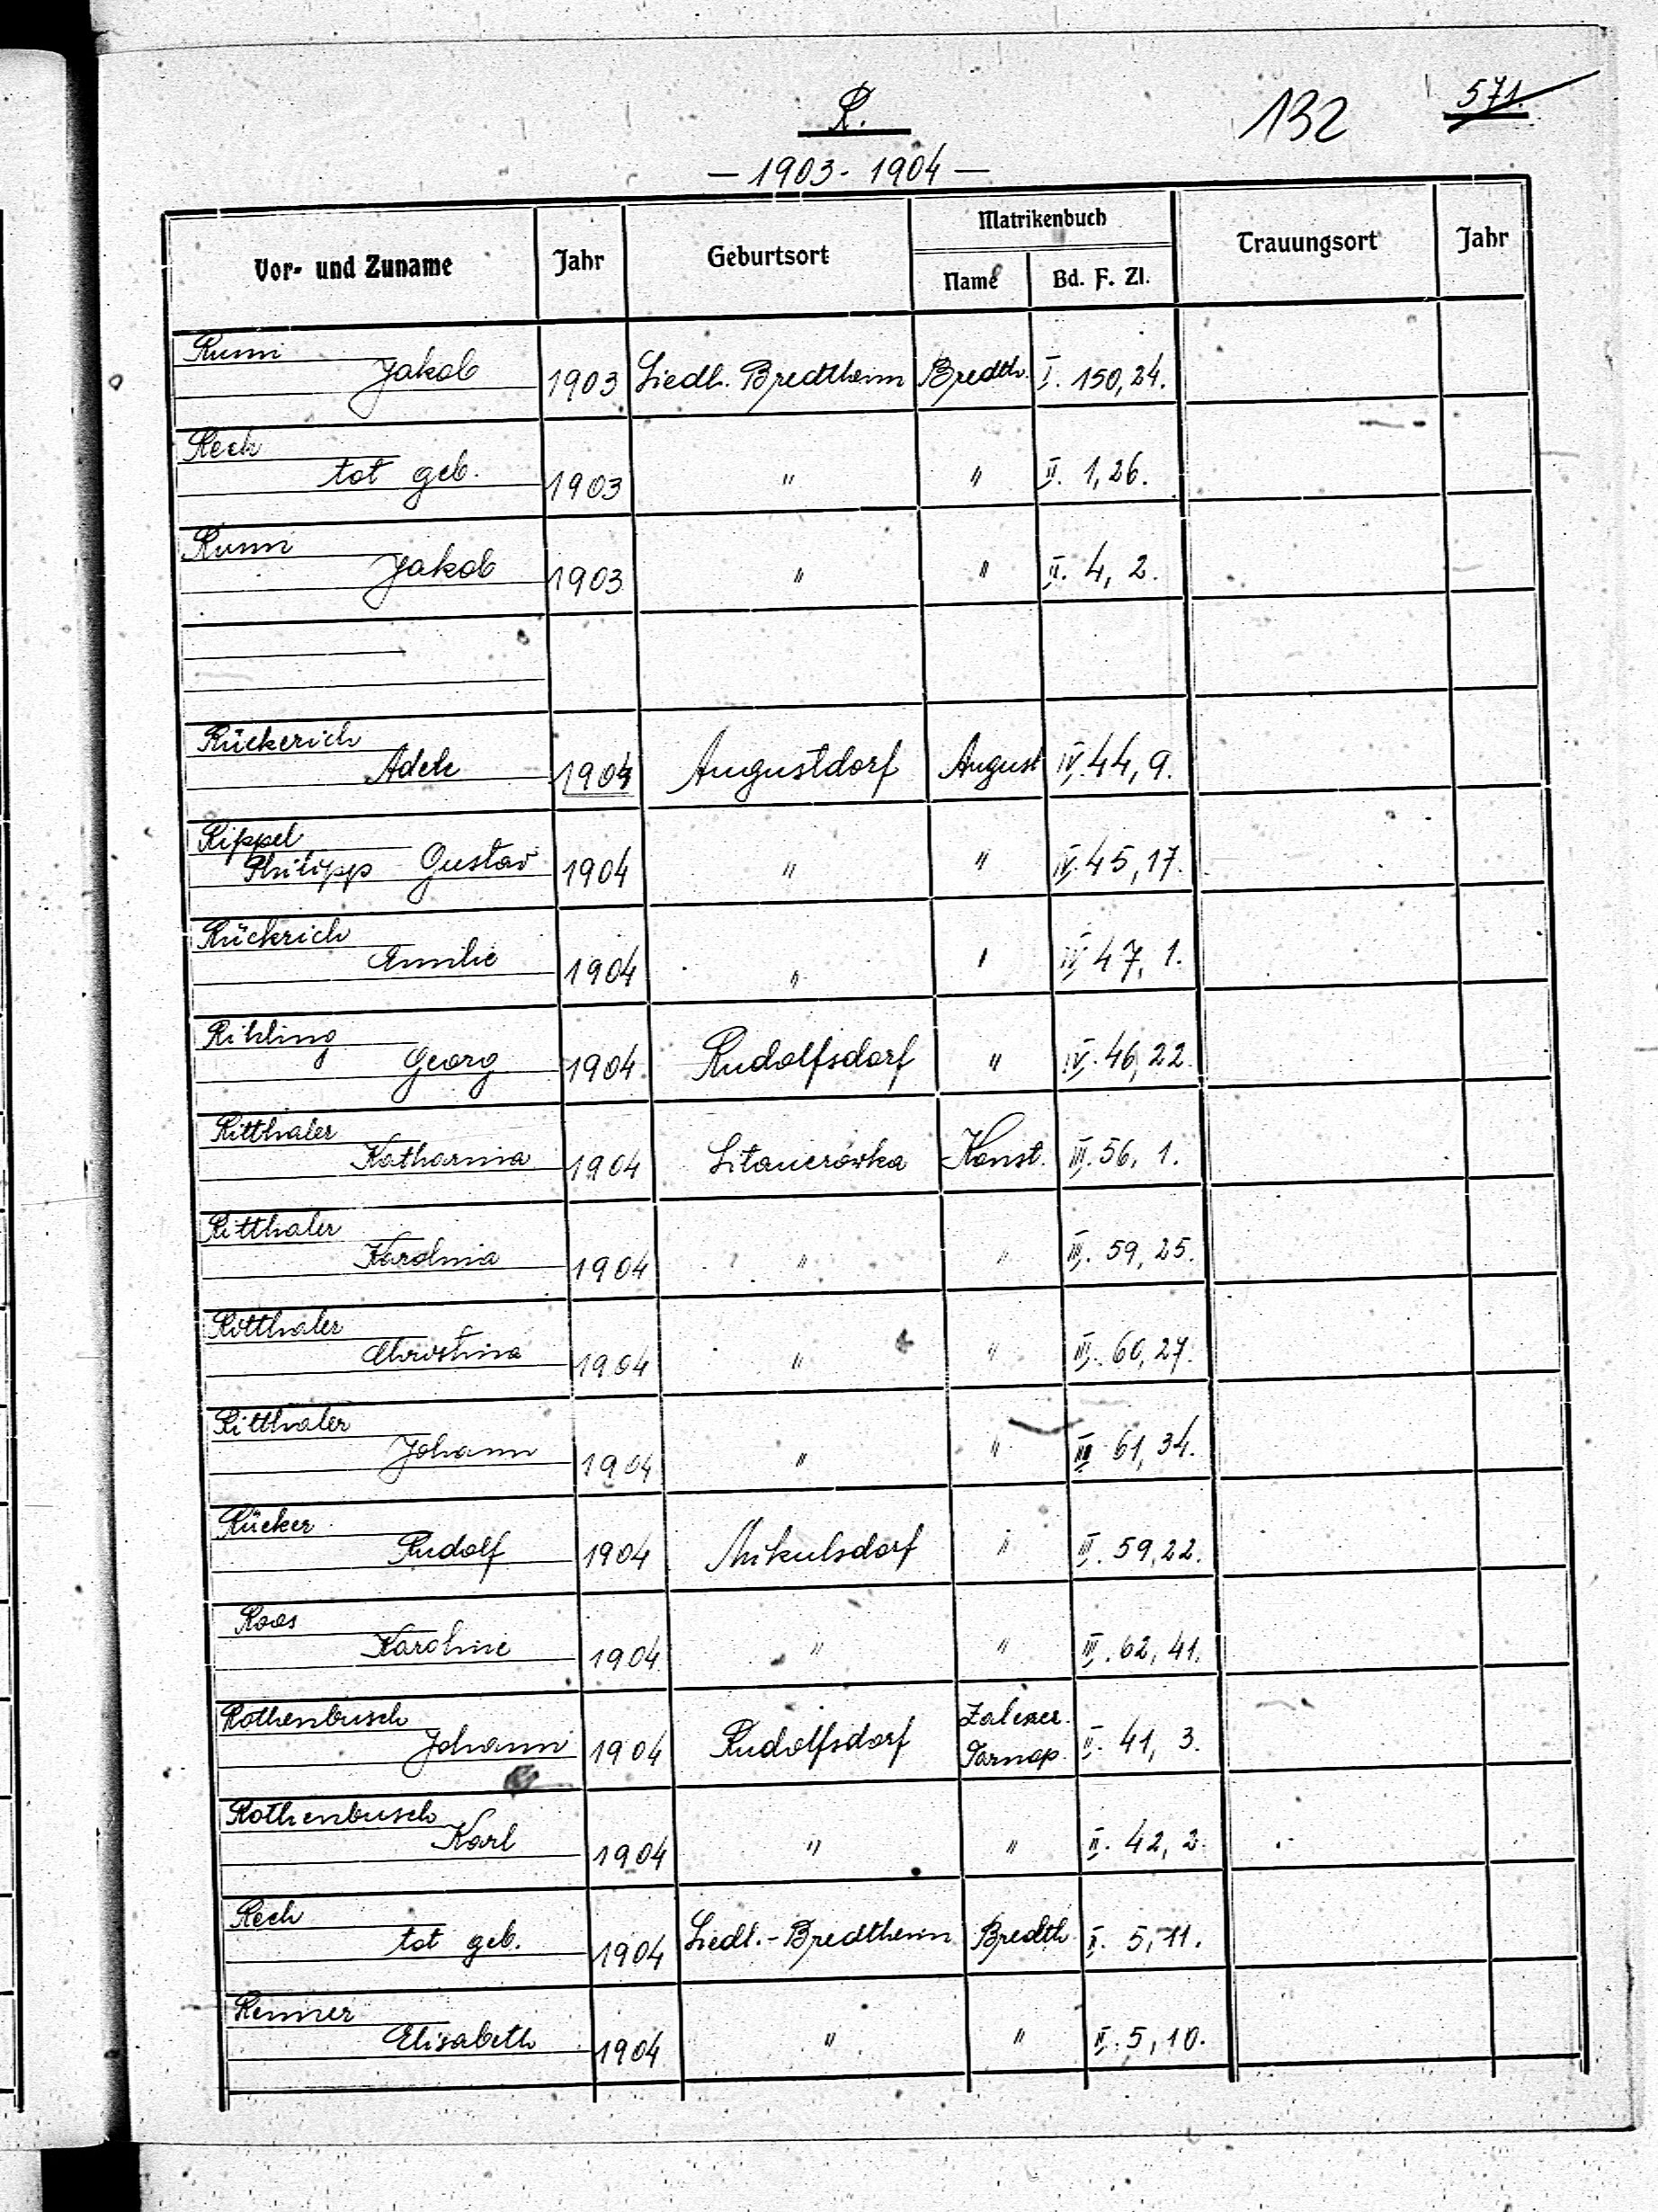 R.
132
571.
— 1903 - 1904 —
Vor- und Zuname Jahr Geburtsort Matrikenbuch Trauungsort Jahr
Name Bd. F. Zl.
Rumi
Jakob 1903 Siedl. Bredtheim Bredth. I. 150, 24.
Rech
tot geb. 1903 " " II. 1, 26.
Rumi
Jakob 1903 " " II. 4, 2.
Rückerich
Adele 1904 Augustdorf August IV. 44, 9.
Rippel
Philipp Gustav 1904 " " IV. 45, 17.
Rückrich
Emilie 1904 " " IV. 47, 1.
Rihling
Georg 1904 Rudolfsdorf " IV. 46, 22.
Ritthaler
Katharina 1904 Sitauerówka Konst. III. 56, 1.
Ritthaler
Karolina 1904 " " III. 59, 25.
Ritthaler
Christina 1904 " " III. 60, 27.
Ritthaler
Johann 1904 " " III 61, 34.
Rücker
Rudolf 1904 Mikulsdorf " III. 59, 22.
Roos
Karoline 1904 " " III. 62, 41.
Rothenbusch
Johann 1904 Rudolfsdorf Zaleszcz. Tarnop. II. 41, 3.
Rothenbusch
Karl 1904 " " II. 42, 2.
Rech
tot geb. 1904 Siedl.-Bredtheim Bredth II. 5, 11.
Renner
Elisabeth 1904 " " II. 5, 10.